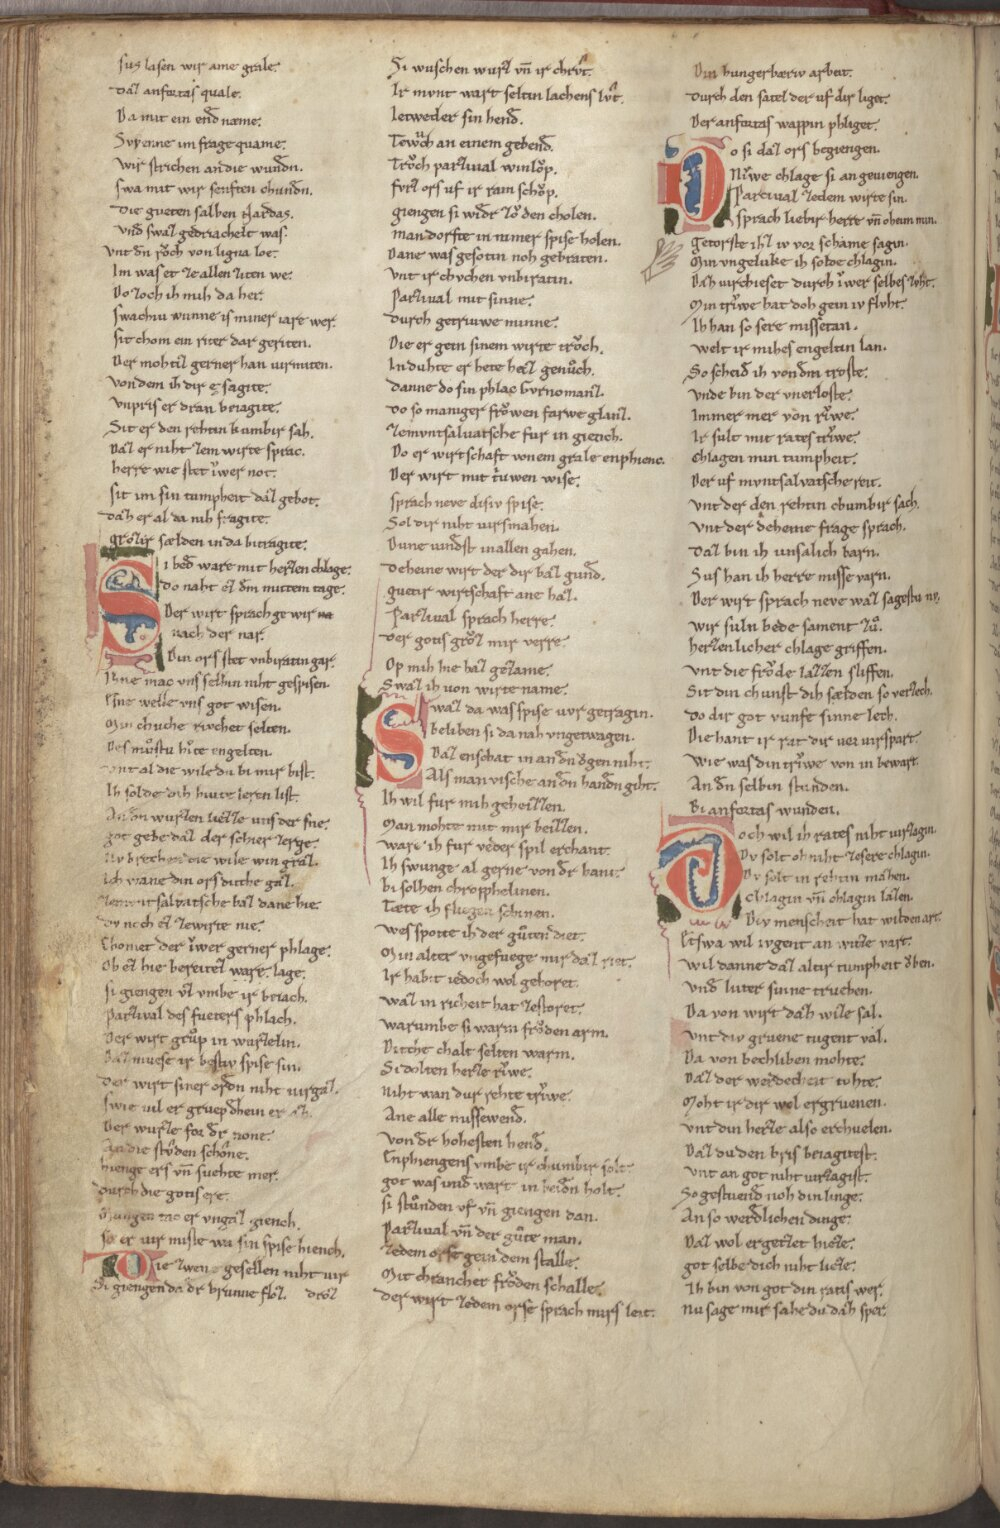 sus lasen wir ame grale.
daz anfortas quale.
Da mit ein end næme.
Swenne im frage quame.
wir strichen an die wundn.
swa mit wir senften chundn.
die gueten salben nardas.
vnd swaz gedriachelt was.
vnt dn rŏch von ligna loe.
Im was et ze allen ziten we.
Do zoch ih mih da her.
swachiu wunne is miner iare wer.
sit chom ein riter dar geriten.
Der mohtiz gerner han virmiten.
von dem ih dir e sagite.
vnpris er dran beiagite.
Sit er den rehtin kumbir sah.
Daz er niht zem wirte sprac.
herre wie stet iwer not.
sit im sin tumpheit daz gebot.
daz er al da nih fragite.
grozir sælden in da bitragite.
Si bed ware mit herzen chlage.
do naht ez dem mittem tage.
Der wirt sprach ge wir
nach der nar.
Din ors stet vnbiratin gar.
Ihne mac vns selbin niht gespisen.
Esne welle vns got wisen.
Min chuche riuchet selten.
Des mŭstu hîte engelten.
vnt al die wile du bi mir bist.
Ih solde dih hiute leren list.
An dn wurzen liezze uns der sne.
got gebe daz der schier zerge.
Nv brechen die wile win graz.
ich wane din ors dicche gaz.
ze muntsalvatsche baz dane hie.
dv noch ez ze wirte nie.
Chomet der iwer gerner phlage.
Ob ez hie bereitez ware. lage.
si giengen vz vmbe ir beiach.
Parzival des fueters phlach.
Der wirt grŭp in wurzelin.
Daz muese ir bestiv spise sin.
der wirt siner ordn niht virgaz.
swie vil er gruep dhein er
Der wurze for dr none.
An die stŭden schône.
hienge ers vn suehte mer.
durch die gotis ere.
er vngaz giench.
so er vir miste wa sin spise hiench.
Die zwene gesellen niht vir
Si giengen da dr brunne floz. droz
Si wuschen wurz vn ir chrût.
Ir mvnt wart seltin lachens lût.
Ietweder sin hend.
Tewŭch an einem gebend.
Trŏch parzival winlŏp.
furz ors uf ir ram schŏp.
giengen si widr zŏ den cholen.
man dorfte in nimer spise holen.
Dane was gesotin noh gebraten.
vnt ir chvchen vnbiratin.
Parzival mit sinne.
durch getriuwe minne.
Die er gein sinem wirte trŏch.
In duhte er hete baz genŭch.
danne do sin phlac Gvrnomanz.
do so maniger frŏwen farwe glanz.
ze mvntsalvatsche fur in giench.
Do er wirtschaft vonem grale enphienc.
Der wirt mit triuwen wise.
sprach neve disiv spise.
Sol dir niht virsmahen.
Dune vundst in allen gahen.
deheine wirt der dir baz gund.
guetir wirtschaft ane haz.
Parzival sprach herre.
der gotis grŏz mir verre.
Op mih bie baz gezame.
Swaz ih von wirte name.
Swaz da was spise vvr getragin.
beliben si da nah vngetwagen.
Daz enschat in an dn ŏgen niht.
Als man vische an dn handn giht.
Ih wil fur mih geheizzen.
Man mohte mit mir beizzen.
ware ih fur veder spil erchant.
Ih swunge al gerne von dr hant.
bi solhen chropphelinen.
Tæte ih fliegen schinen.
wes spotte ih der gŭten diet.
Min alter vngefuege mir daz riet.
Ir habit iedoch wol gehoret.
waz in richeit hat zestoret.
warumbe si warm frŏden arm.
Dicche chalt selten warm.
Si dolten herze rîwe.
Niht wan dur rehte trîwe.
Ane alle missewend.
von dr hohesten hend.
Enphiengens vmbe ir chumbir solt.
got was und wart in beidn holt.
si stŭnden vf vn giengen dan.
Parzival vn der gŭte man.
zedem orse gein dem stalle.
Mit chrancher frŏden schalle.
der wirt zedem orse sprach mirs leit.
Din hungerbæriv arbeit.
durch den satel der uf dir liget.
Der anfortas wappin phliget.
Do si daz ors begiengen.
Niwe chlage si an geviengen.
Parcival zedem wirte sin.
sprach liebir herre vn oheim min.
getorste ihz iv vor schame sagin.
Min vngeluke ih solde chlagin.
Daz virchieset durch iwer selbes zuht.
Min triwe hat doh gein iv fluht.
Ih han so sere missetan.
welt ir mihes engeltin lan.
So scheid ih von dm troste.
vnde bin der vnerloste.
Immer mer von riwe.
Ir sult mit rates triwe.
chlagen min tumpheit.
Der uf mvntsalvatsche reit.
vnt der den rehtin chumbir sach.
vnt der deheine frage sprach.
daz bin ih unsalich barn.
Sus han ih herre misse varn.
Der wirt sprach neve waz sagestu
wir suln bede sament zŭ.
herzenlicher chlage griffen.
vnt die frŏde lazzen sliffen.
Sit din chunst dih sælden so verzech.
do dir got vunfe sinne lech.
Die hant ir rat dir vor virspart.
wie was din triwe von in bewart.
An dn selbin stunden.
Bi anfortas wunden.
Doch wil ih rates niht virzagin.
Dv solt oh niht zesere chlagin.
Dv solt in rehtin mazen.
chlagin vn chlagin lazen.
Div menscheit hat wilden art.
Etswa wil ivgent an witze vart.
wil danne daz altir tumpheit ŏben.
vnd luter sinne trueben.
Da von wirt daz wize sal.
vnt div gruene tugent val.
Da von bechliben mohte.
Daz der werdecheit tohte.
Moht ir dir wol ergruenen.
vnt din herze also erchuelen.
Daz du den bris beiagitest.
vnt an got niht virzagist.
So gestuend noh din linge.
An so werdlichen dinge.
Daz wol ergetzet hieze.
got selbe dich niht lieze.
Ih bin von got din ratis wer.
nu sage mir sahe du daz sper.